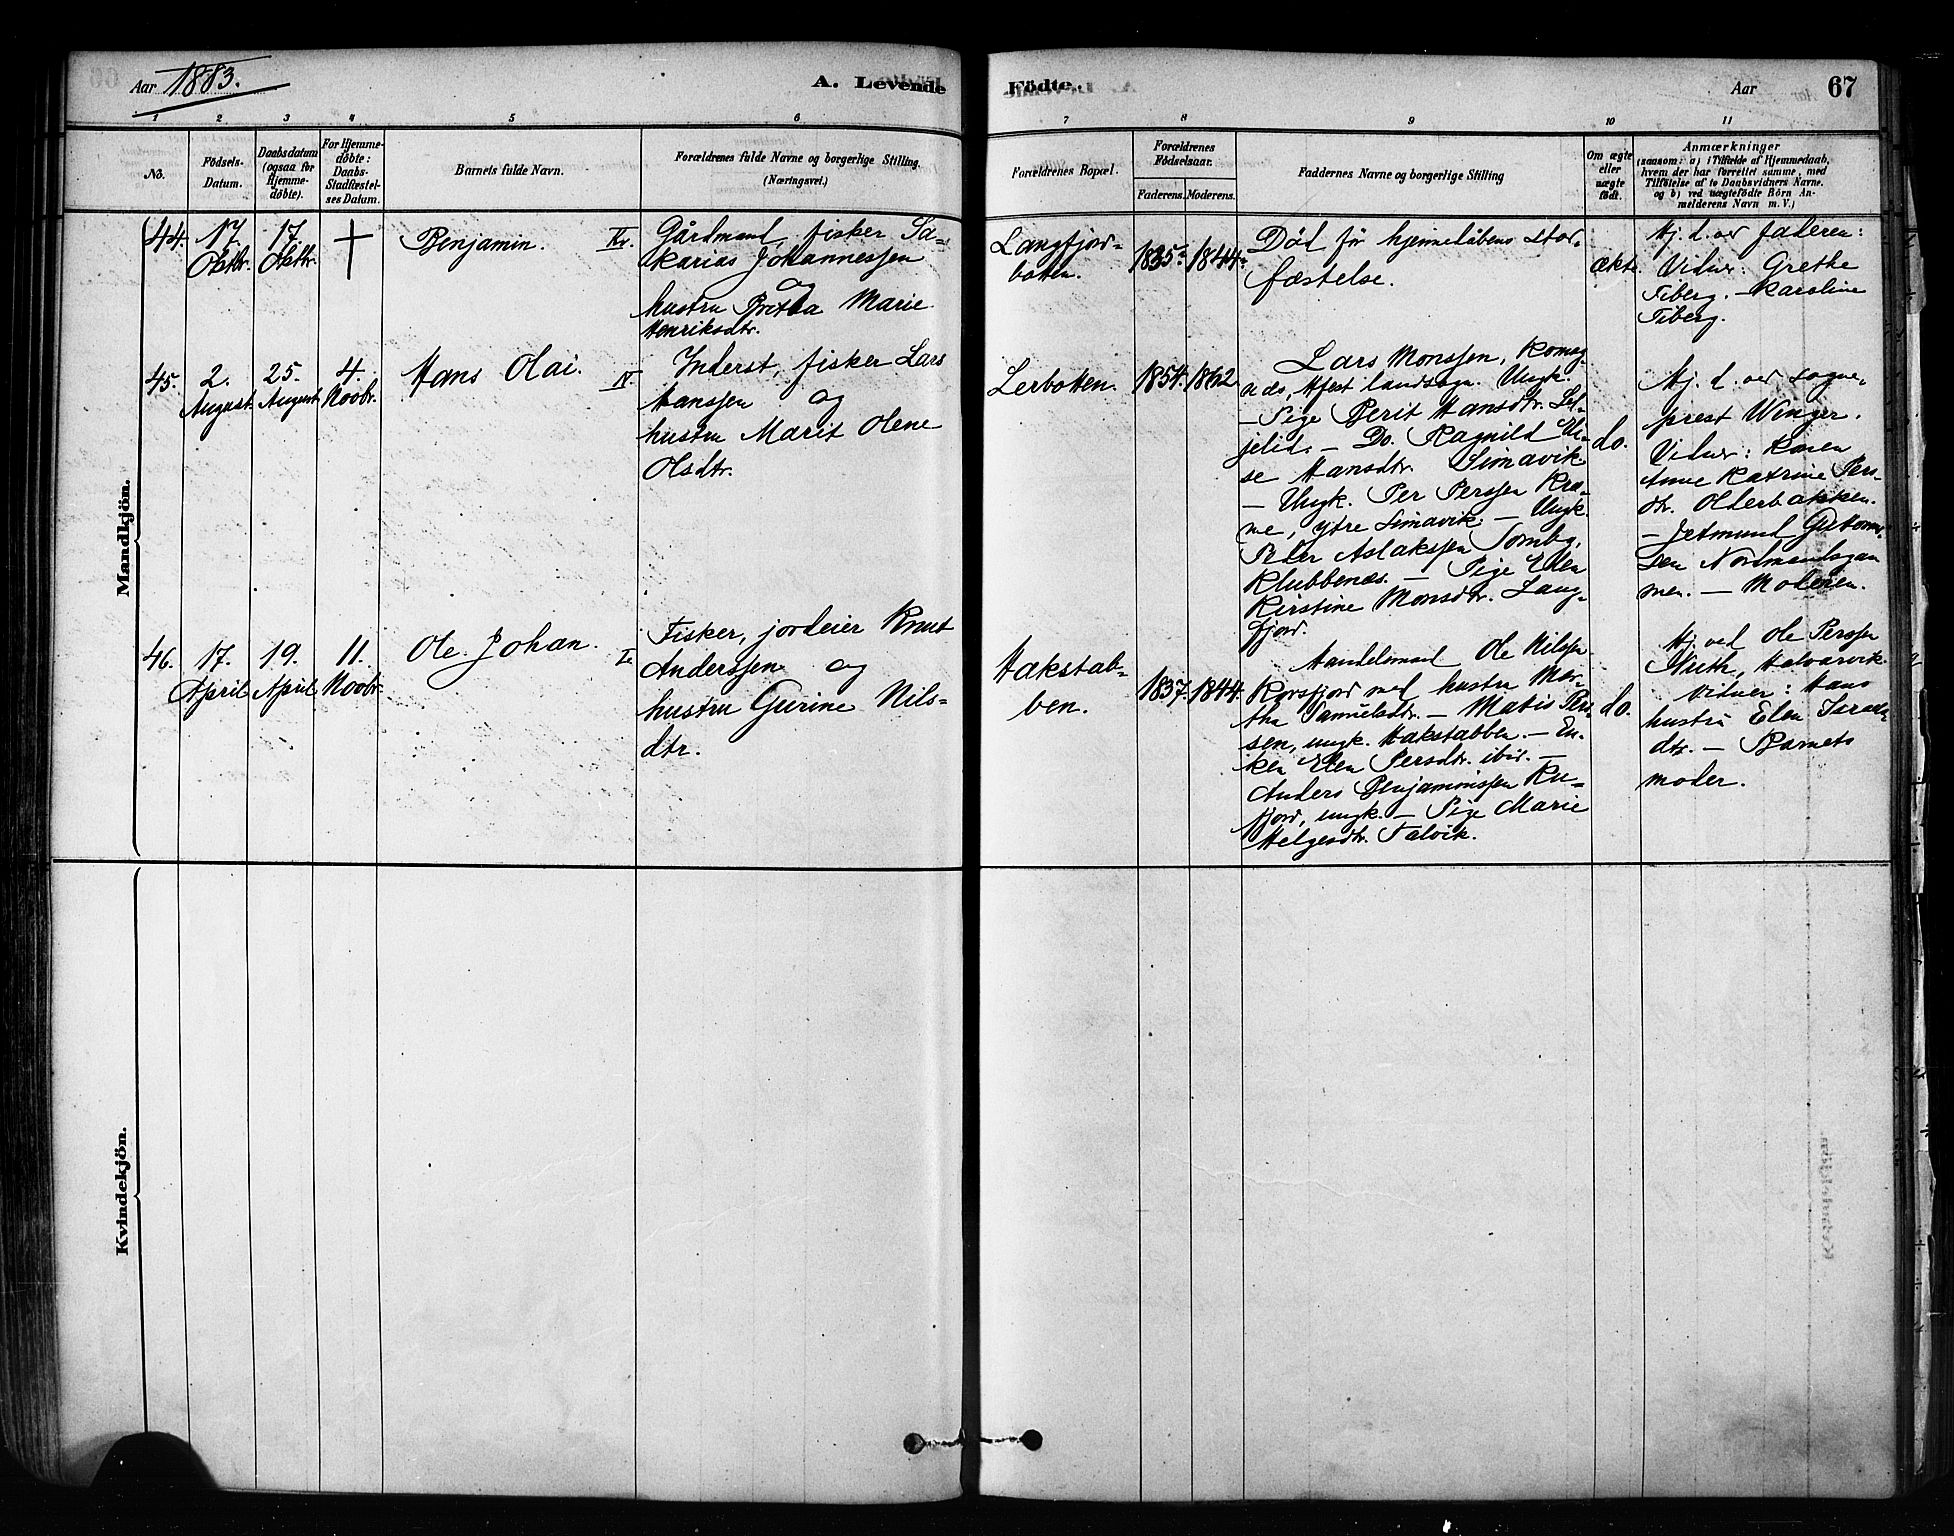 Aar 1883.
A. Levende
Födte.
Aar
67
1
2
3
4
5
6
7
8
9
10
11
No.
Födsels-
Datum.
Daabsdatum
(ogsaa for
Hjemme-
döbte).
For Hjemme-
döbte:
Daabs-
Stadfæstel-
ses Datum.
Barnets fulde Navn.
Forældrenes fulde Navne og borgerlige Stilling.
(Næringsvei.)
Forældrenes Bopæl.
Forældrenes
Födselsaar.
Faderens.
Moderens.
Faddernes Navne og borgerlige Stilling
Om ægte
eller
uægte
födt.
Anmærkninger
(saasom: a) i Tilfælde af Hjemmedaab,
hvem der har forrettet samme, med
Tilföielse af to Daabsvidners Navne,
og b) ved uægtefödte Börn An-
melderens Navn m.V.)
Mandkjön.
44.
17.
Oktbr.
17.
Oktbr.
†
Benjamin.
Gårdmand, fisker Sa-
karias Johannessen
og
hustru Britha Marie
Henriksdtr.
Langfjord-
botten.
1835.
1844.
Död för hjemmedåbens stad-
fæstelse.
ækte.
Hj. d. ved faderen:
Vidner: Grethe
Fiberg. – Karoline
Fiberg.
45.
2.
August.
25.
August
4.
Novbr.
Hans Olai.
IV.
Inderst, fisker Lars
Hanssen og
hustru Marit Olene
Olsdtr.
Lerbotten.
1854.
1862
Lars Monssen, Komag-
næs, Hfest landsogn. Ungk.
– Pige Berit Hansdtr.
– Do. Ragnild El-
se Hansdtr. Simavik.
– Ungk. Per Perssen
ytre Simavik. – Ungk.
Peter Aslakssen
Klubbenæs. – Pige Elen
Kirstine Monsdtr. Lang-
fjord.
do.
Hj. d. ved sogne-
prest Winger.
Vidner: Karen
Anne Katrine Pers-
dtr. Olderbakken.
– Jetmund
sen Nordmandsgam
men. – Moderen.
46.
17.
April
19.
April
11.
Novbr.
Ole Johan.
I.
Fisker, jordeier Knut
Anderssen og
hustru Gurine Nils-
dtr.
Hakstab-
ben.
1837.
1844.
Handelsmand Ole Nilssen
Korsfjord med hustru Mar-
tha Samuelsdtr. – Matis Pers-
sen, ungk. Hakstabben. – En-
ken Elen Persdtr. ibid. –
Anders Benjaminssen
fjord, ungk. – Pige Marie
Helgesdtr. Talvik.
do.
Hj. ved Ole Perssen
Halvarvik.
Vidner: Hans
hustru Elen Israels
dtr. – Barnets
moder.
Kvindekjön.